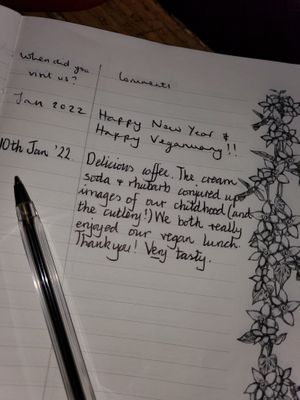 When did you visit us?
Comments
Jan 2022
Happy New Year &
Happy Veganuary!!
10th Jan '22
Delicious coffee. The cream
soda & rhubarb conjured up
images of our childhood (and
the cutlery!) We both really
enjoyed our vegan lunch.
Thankyou! Very tasty.